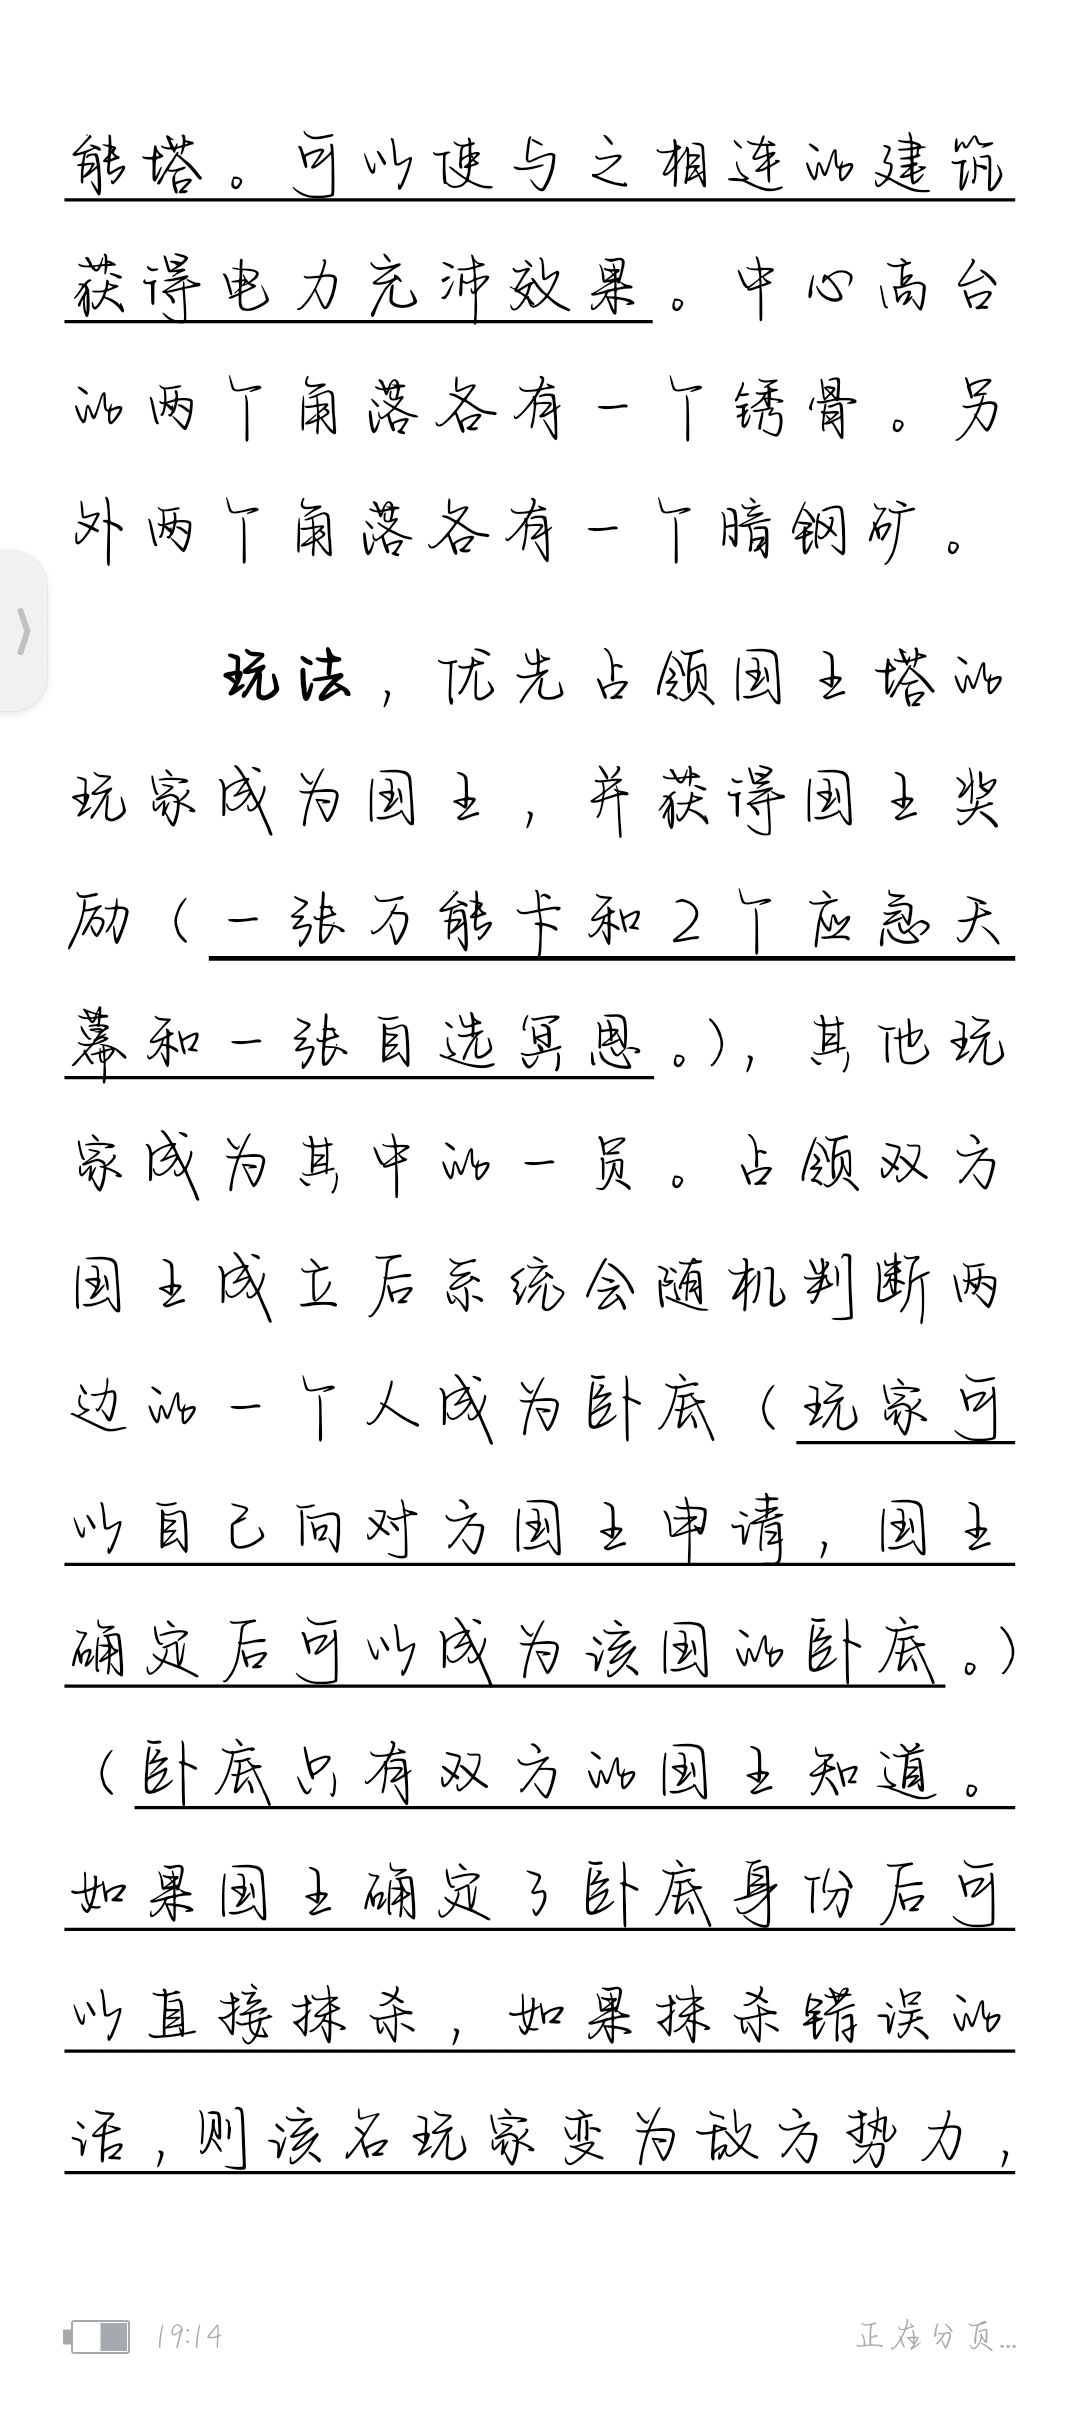 能塔。可以使与之相连的建筑
获得电力充沛效果。中心高台
的两个角落各有一个锈骨。另
外两个角落各有一个暗钢矿。
玩法，优先占领国王塔的
玩家成为国王，并获得国王奖
励（一张万能卡和2个应急天
幕和一张自选冥恩。），其他玩
家成为其中的一员。占领双方
国王成立后系统会随机判断两
边的一个人成为卧底（玩家可
以自己向对方国王申请，国王
确定后可以成为该国的卧底。）
（卧底只有双方的国王知道。
如果国王确定了卧底身份后可
以直接抹杀，如果抹杀错误的
话，则该名玩家变为敌方势力，
19:14
正在分页...